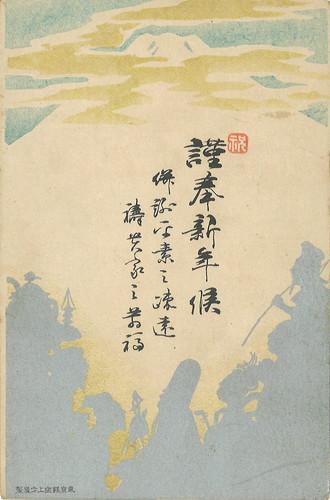 祝
謹奉新年候
併謝平素之疎遠
禱貴家之萬福
東京銀座上方屋製